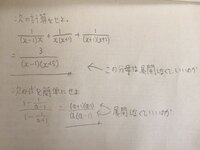 次の計算をせよ。
1/(x-1)x + 1/x(x+1) + 1/(x+1)(x+5)
= 3/(x-1)(x+5) ← この分母は展開しなくていいのか
次の式を簡単にせよ
(1 - 1/(a-1))/(1 - 1/(a+1)) = (a+1)(a-2)/a(a-1) ← 展開しなくていいのか